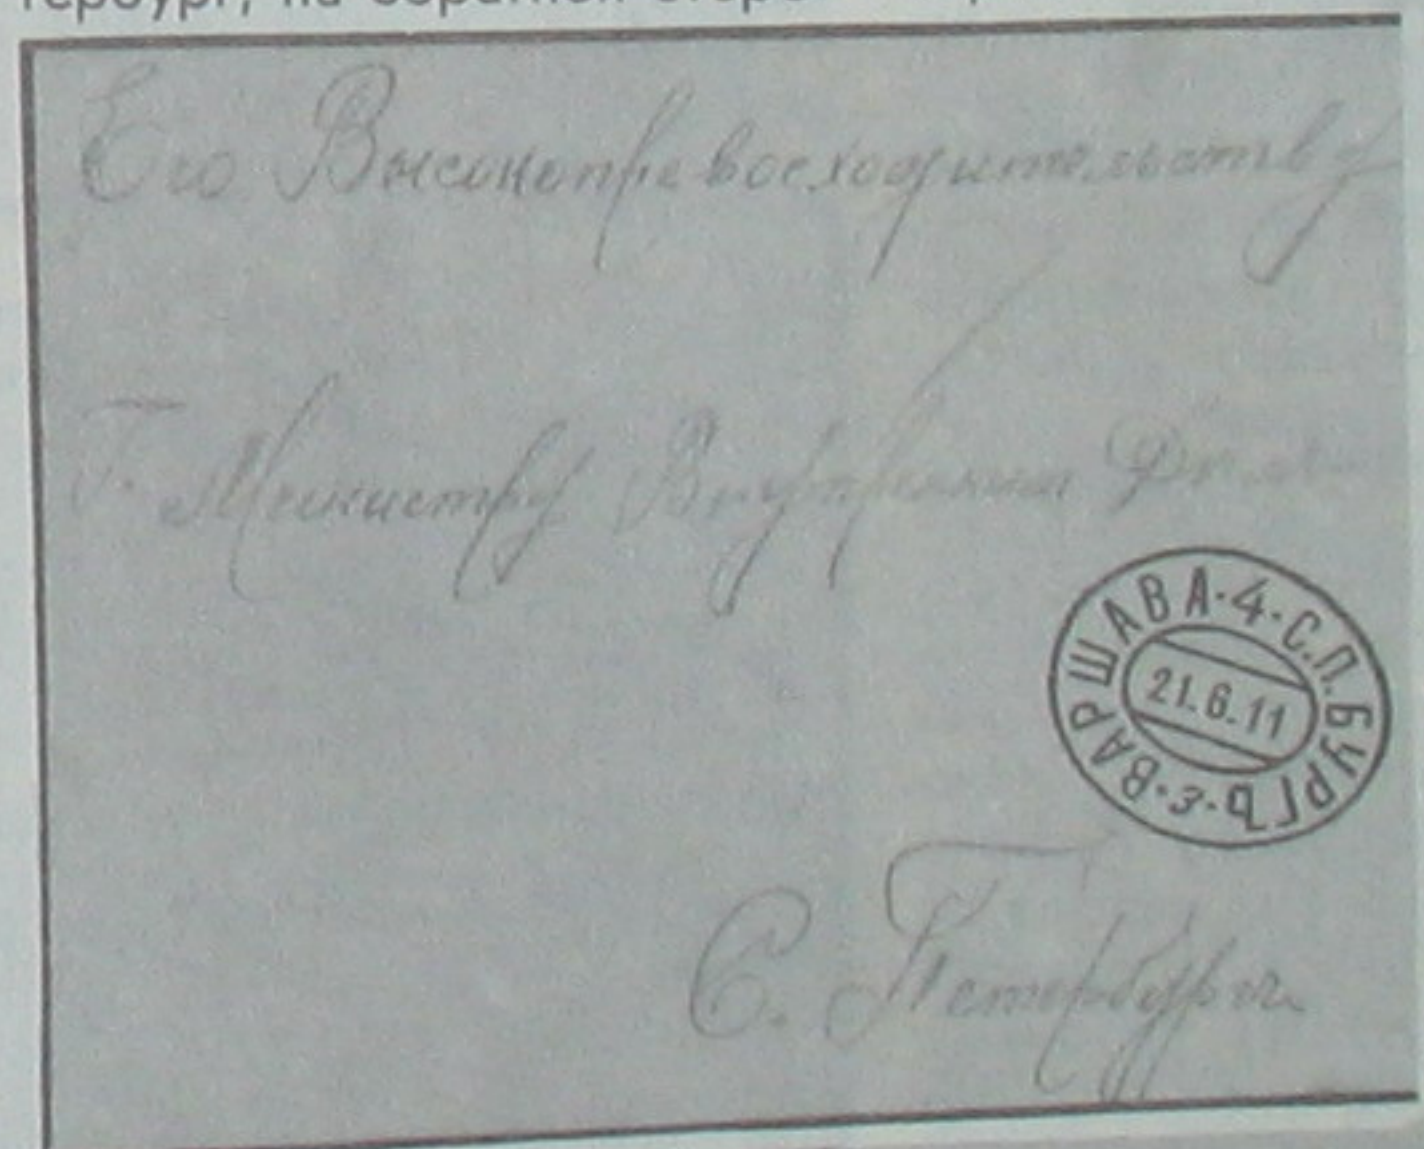 тербург, на обратной
Его Высокопревосходительству
Г. Министру Внутреннихъ Дѣлъ
ВАРШАВА·4·С.П.БУРГЪ·3·
21.6.11
С. Петербургъ